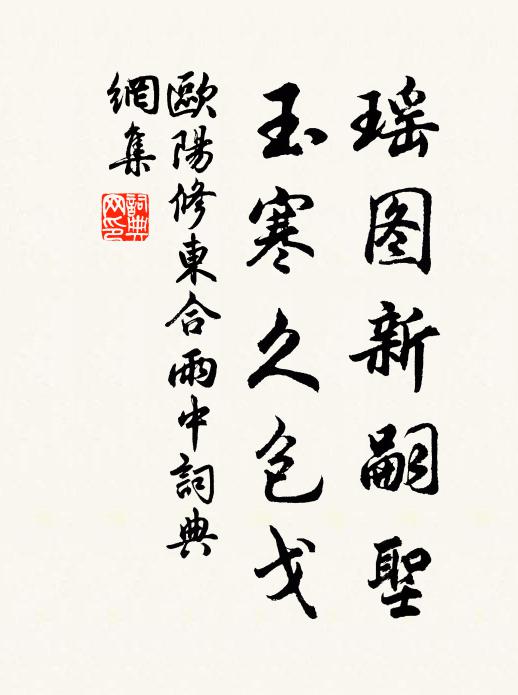 瑶图新嗣聖
玉寒久包戈
歐陽修東合雨中詞典
網集
詞典
网印